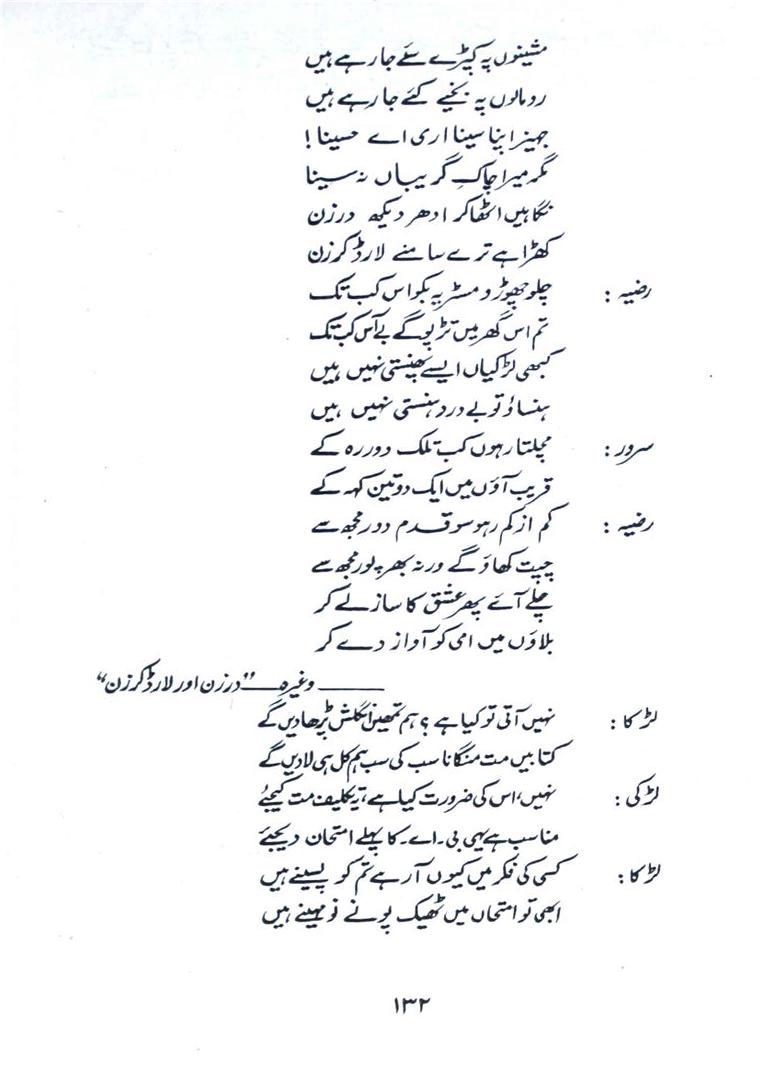 مشینوں پہ کپڑے سئے جا رہے ہیں
رومالوں پہ بخیے کئے جا رہے ہیں
جہیز اپنا سینا اری اے حسینا!
مگر میرا چاکِ گریباں نہ سینا
نگاہیں اٹھا کر ادھر دیکھ درزن
کھڑا ہے ترے سامنے لارڈ کرزن
رضیہ : چلو چھوڑو مسٹر یہ بکواس کب تک
تم اس گھر میں تڑپو گے بے آس کب تک
کبھی لڑکیاں ایسے پھنستی نہیں ہیں
ہنساؤ تو بے درد ہنستی نہیں ہیں
سرور : مچلتا رہوں کب تلک دور رہ کے
قریب آؤں میں ایک دو تین کہہ کے
رضیہ : کم از کم رہو سو قدم دور مجھ سے
چپت کھاؤ گے ورنہ بھرپور مجھ سے
چلے آئے پھر عشق کا ساز لے کر
بلاؤں میں امی کو آواز دے کر
——— وغیرہ —— "درزن اور لارڈ کرزن"
لڑکا : نہیں آتی تو کیا ہے ؟ ہم تمھیں انگلش پڑھا دیں گے
کتابیں مت منگانا سب کی سب ہم کل ہی لا دیں گے
لڑکی : نہیں، اس کی ضرورت کیا ہے، یہ تکلیف مت کیجئے
مناسب ہے یہی بی۔اے۔ کا پہلے امتحان دیجئے
لڑکا : کسی کی فکر میں کیوں آ رہے تم کو پسینے ہیں
ابھی تو امتحاں میں ٹھیک پونے نو مہینے ہیں
۱۳۲